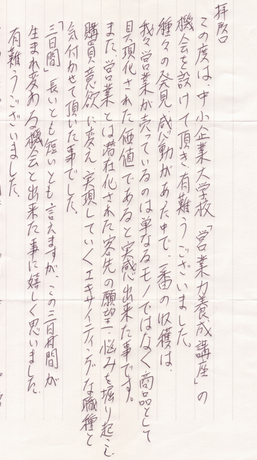 拝啓
この度は、中小企業大学校「営業力養成講座」の
機会を設けて頂き、有難うございました。
種々の発見、感動があった中で、一番の収穫は、
我々営業が売っているのは単なるモノではなく商品として
具現化された価値であると実感出来た事です。
また、営業とは潜在化された客先の願望・悩みを掘り起こし
購買意欲に変え、実現していくエキサイティングな職種と
気付かせて頂いた事でした。
「三日間」長いとも短いとも言えますが、この三日間が
生まれ変める機会と出来た事に嬉しく思いました。
有難うございました。